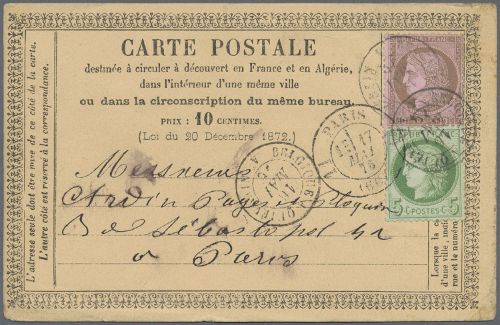 CARTE POSTALE
destinée à circuler à découvert en France et en Algérie,
dans l'intérieur d'une même ville
ou dans la circonscription du même bureau.
PRIX : 10 CENTIMES.
(Loi du 20 Décembre 1872.)
Messieurs
Ardin Pages et
Bd Sébastopol 42
à Paris
L'adresse seule doit être mise de ce côté de la carte.
L'autre côté est réservé à la correspondance.
Lorsque la
d'une ville, mo
rue et le numéro
PARIS
17
5 C POSTES 5 C